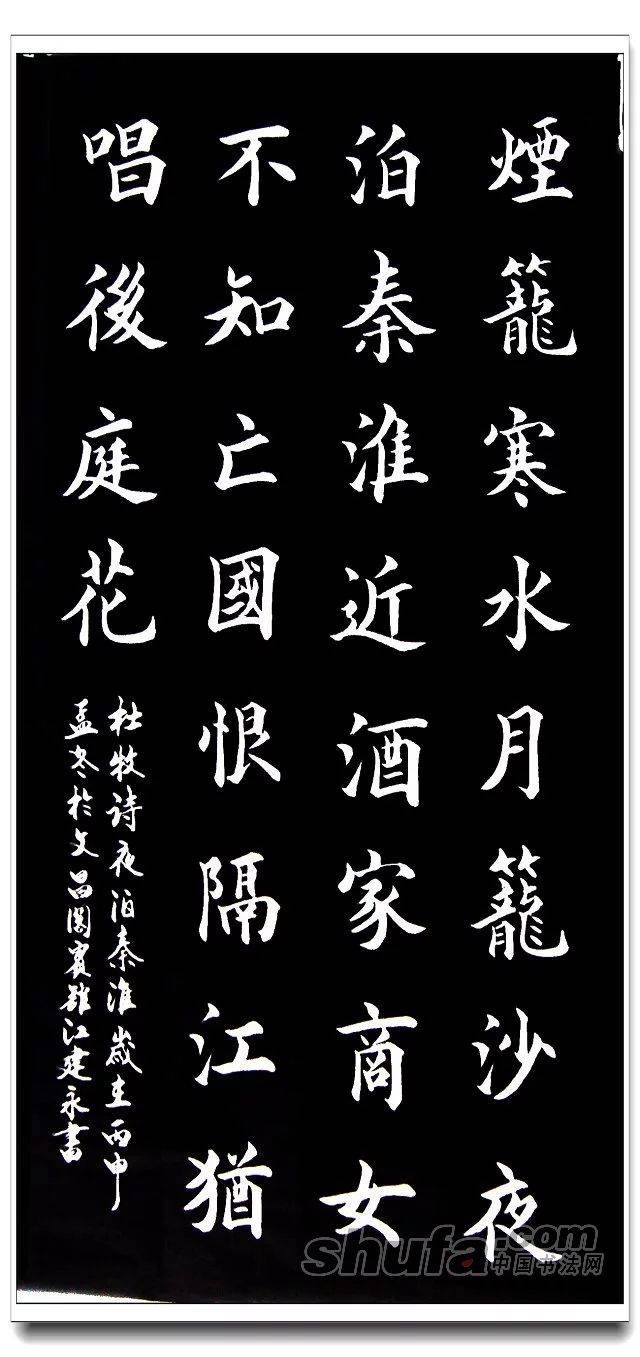 煙籠寒水月籠沙夜
泊秦淮近酒家商女
不知亡國恨隔江猶
唱後庭花
杜牧诗夜泊秦淮歲在丙申
孟冬於文昌閣賓雖江建永書
shufa.com
中国书法网